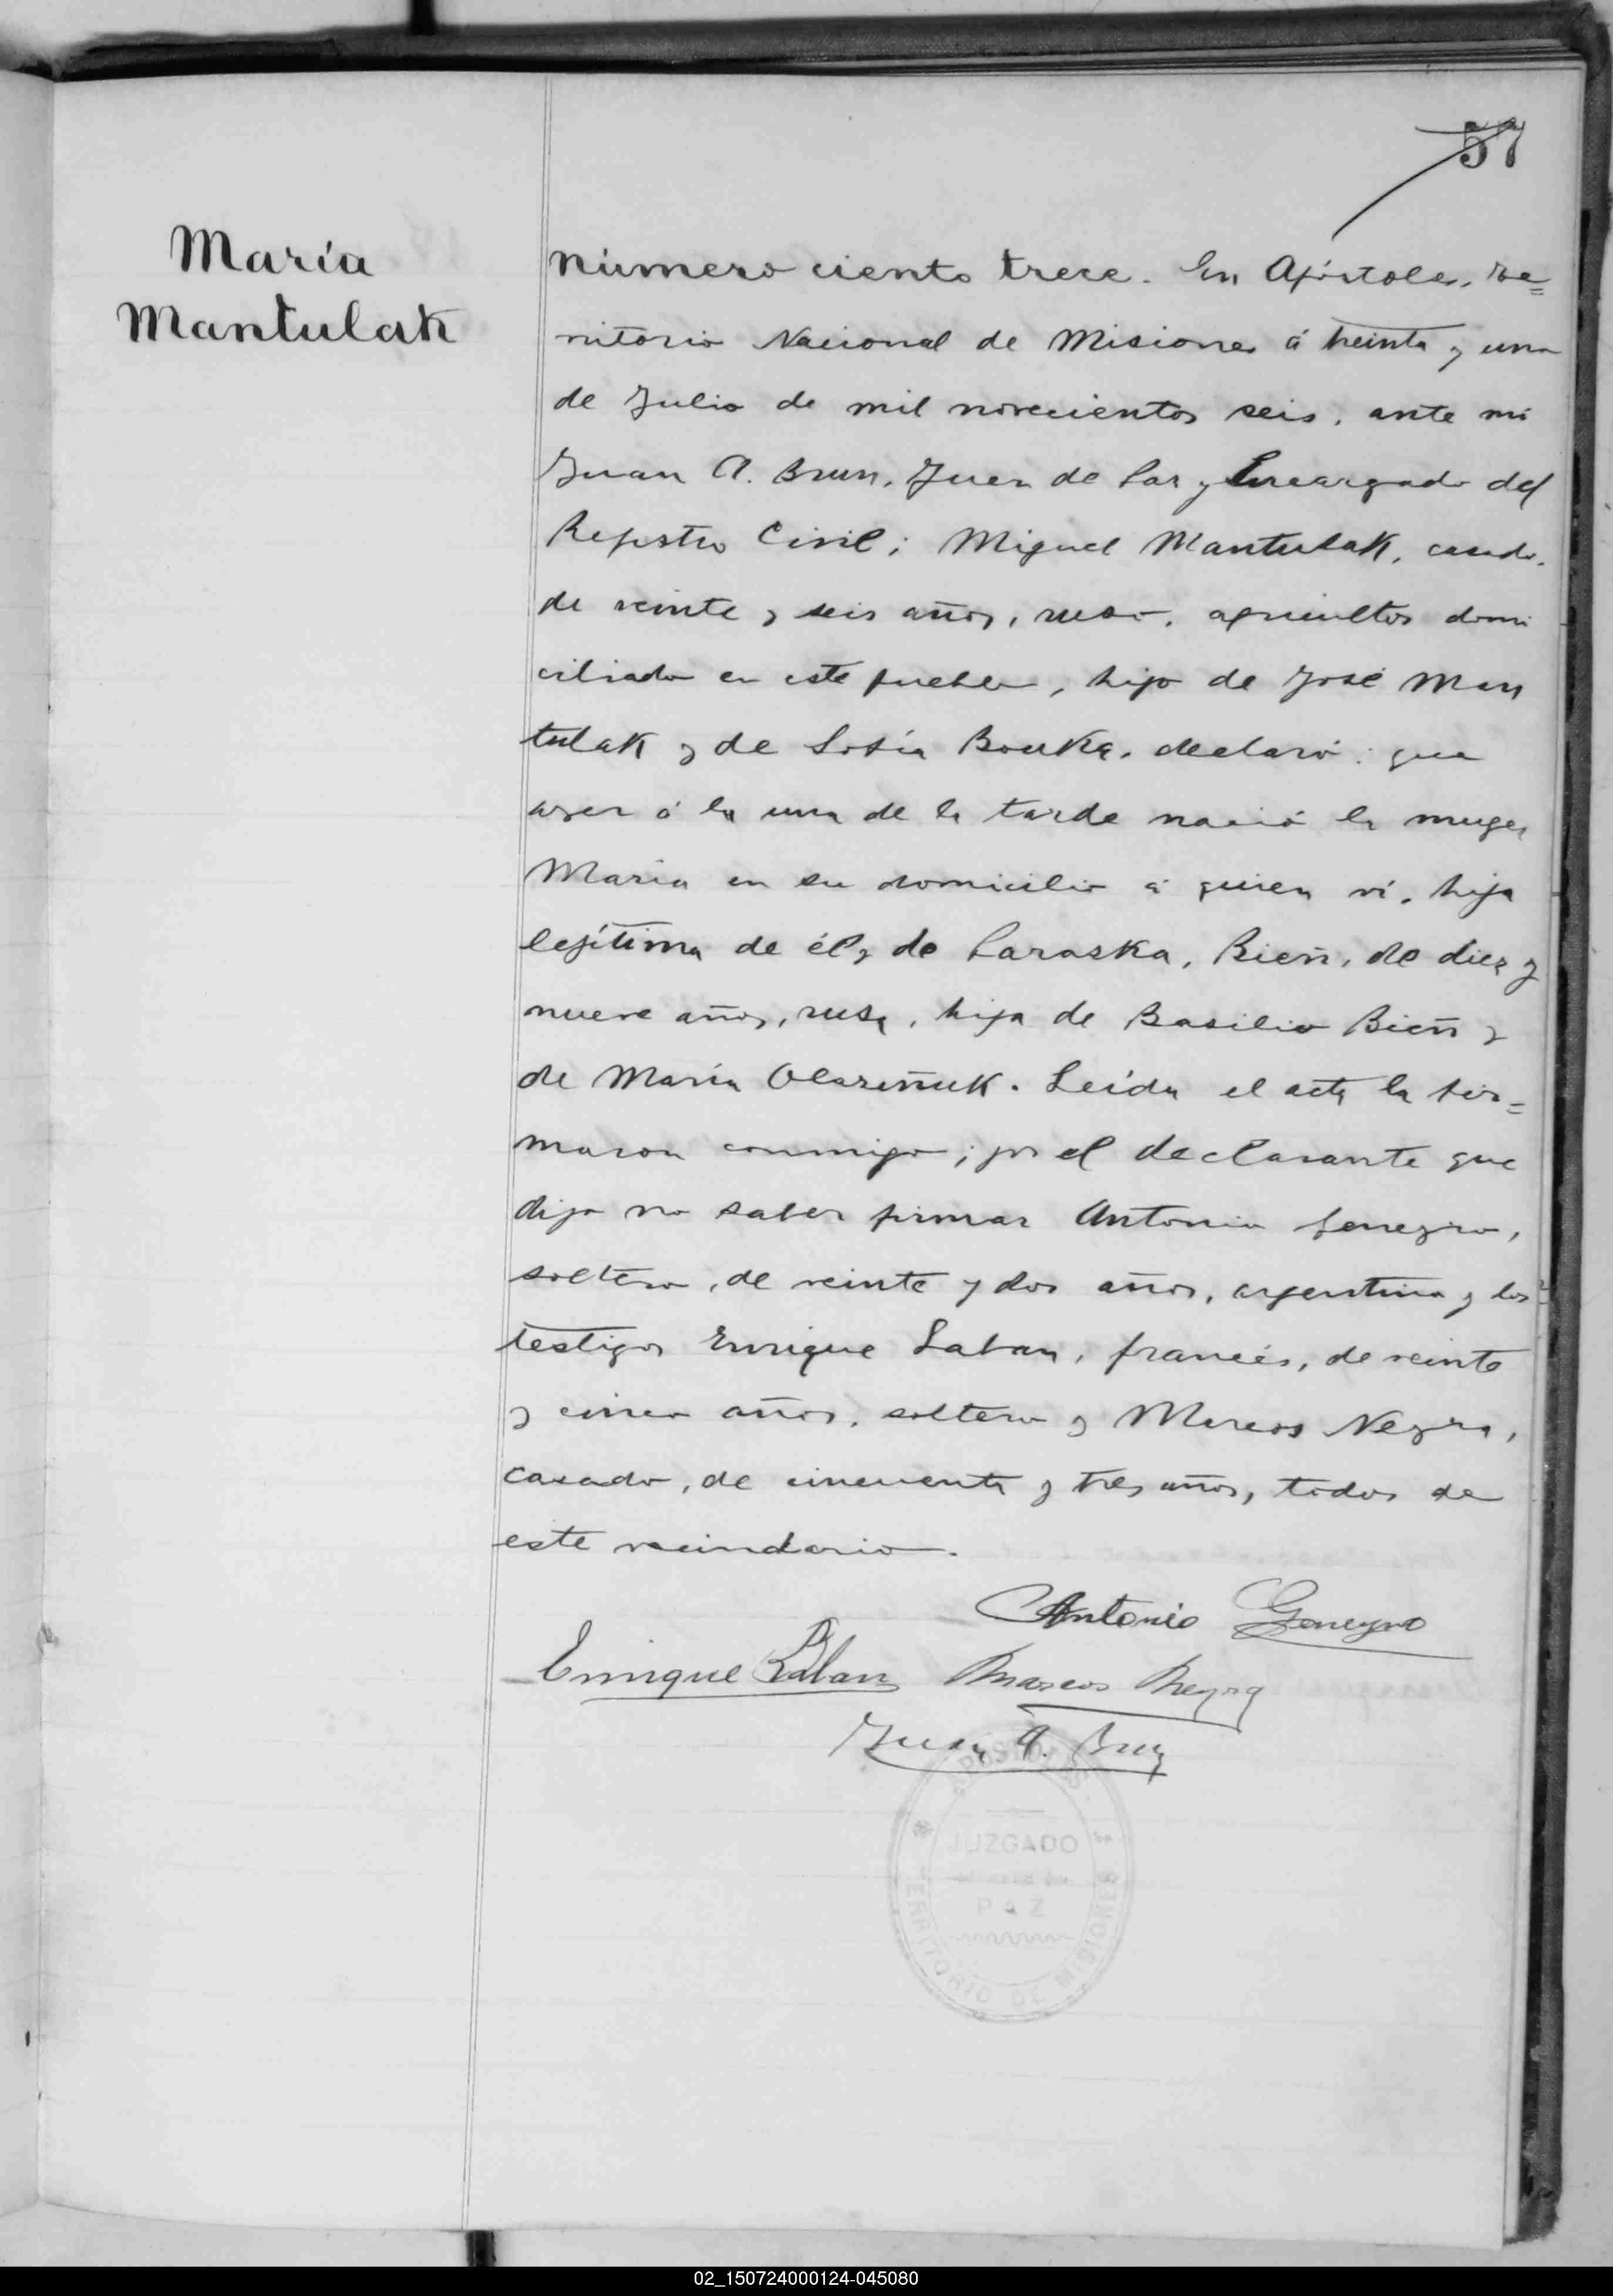 57
María
Mantulak
Número ciento trece. En Apóstoles, Te=
rritorio Nacional de Misiones á treinta y uno
de Julio de mil novecientos seis, ante mí
Juan A. Brun, Juez de Paz y Encargado del
Registro Civil; Miguel Mantulak, casado,
de veinte y seis años, ruso, agricultor domi
ciliado en este pueblo, hijo de José Man
tulak y de Sofía Bouka, declaró: que
ayer á la una de la tarde nació la muger
María en su domicilio á quien ví, hija
legítima de él y de Paraska, Bieñ, de diez y
nueve años, rusa, hija de Basilio Bieñ y
de María Olareñuk. Leída el acta la fir=
maron conmigo; por el declarante que
dijo no saber firmar Antonio Genegro,
soltero, de veinte y dos años, argentino y los
testigos Enrique Laban, francés, de veinte
y cinco años, soltero y Marcos Negra,
casado, de cincuenta y tres años, todos de
este vecindario.
Antonio Genegro
Enrique Laban Marcos Negra
Juan A. Brun
APOSTOLES
JUZGADO
DE
PAZ
TERRITORIO DE MISIONES
02_150724000124-045080